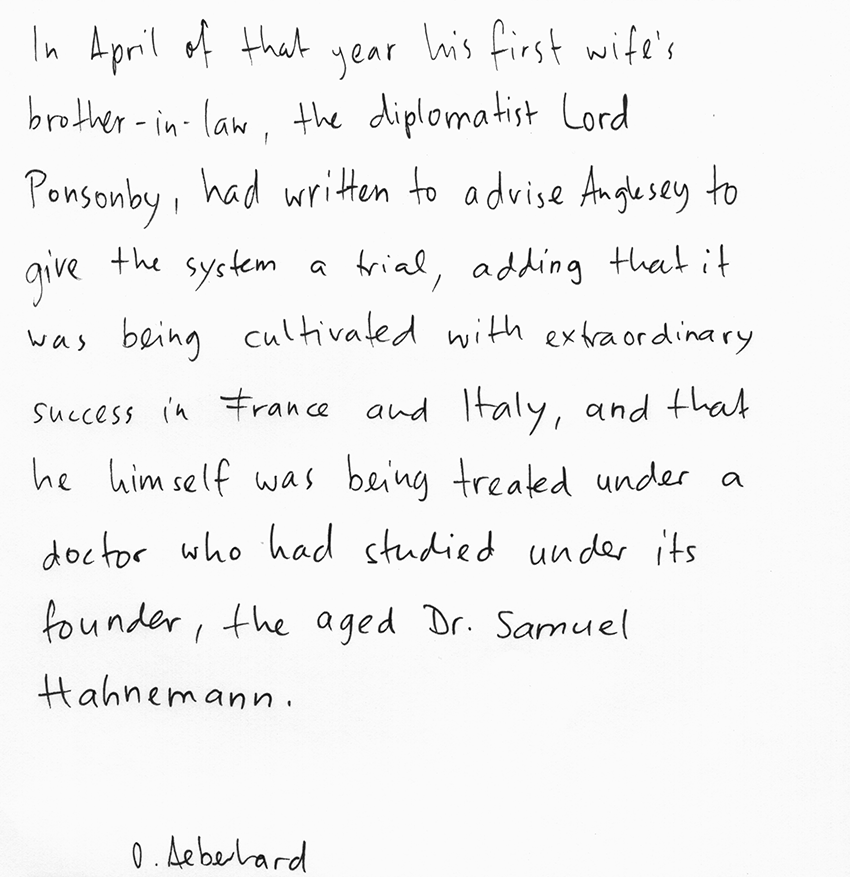 In April of that year his first wife's
brother-in-law, the diplomatist Lord
Ponsonby, had written to advise Anglesey to
give the system a trial, adding that it
was being cultivated with extraordinary
success in France and Italy, and that
he himself was being treated under a
doctor who had studied under its
founder, the aged Dr. Samuel
Hahnemann.
O. Aeberhard